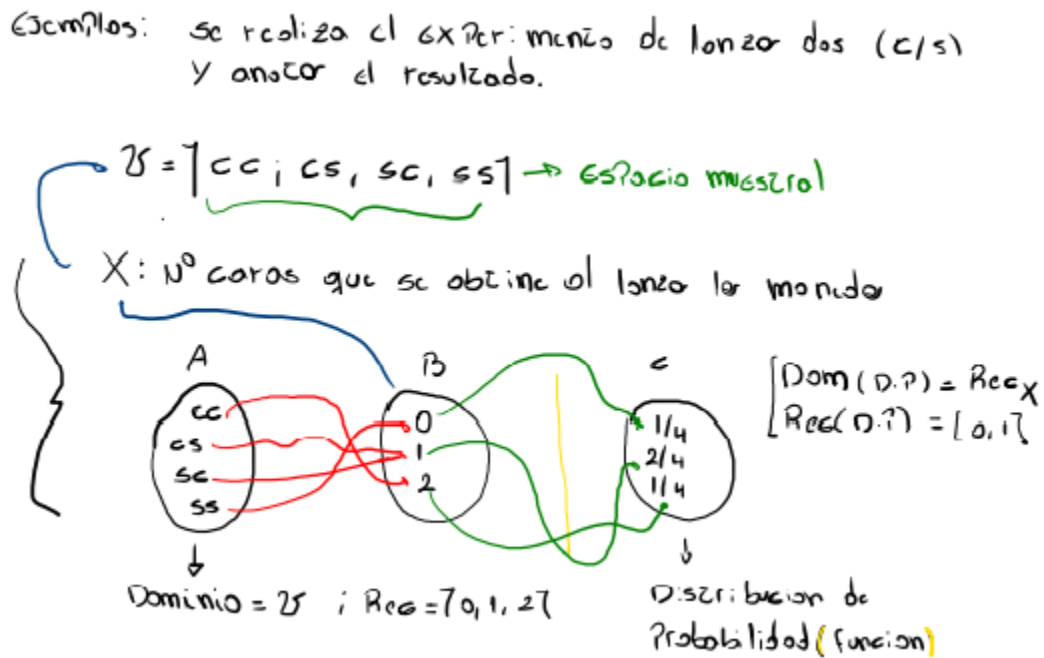 Ejemplos: se realiza el experimento de lanzar dos (c/s)
y anotar el resultado.
Ʊ = {cc; cs, sc, ss} → Espacio muestral
X: Nº caras que se obtine al lanza la moneda
A B C
cc 0 1/4
cs 1 2/4
sc 2 1/4
ss
[Dom (D.P) = Rec x
[Rec (D.P) = [0,1]
Dominio = Ʊ ; Rec = {0, 1, 2}
Distribucion de
Probabilidad (funcion)